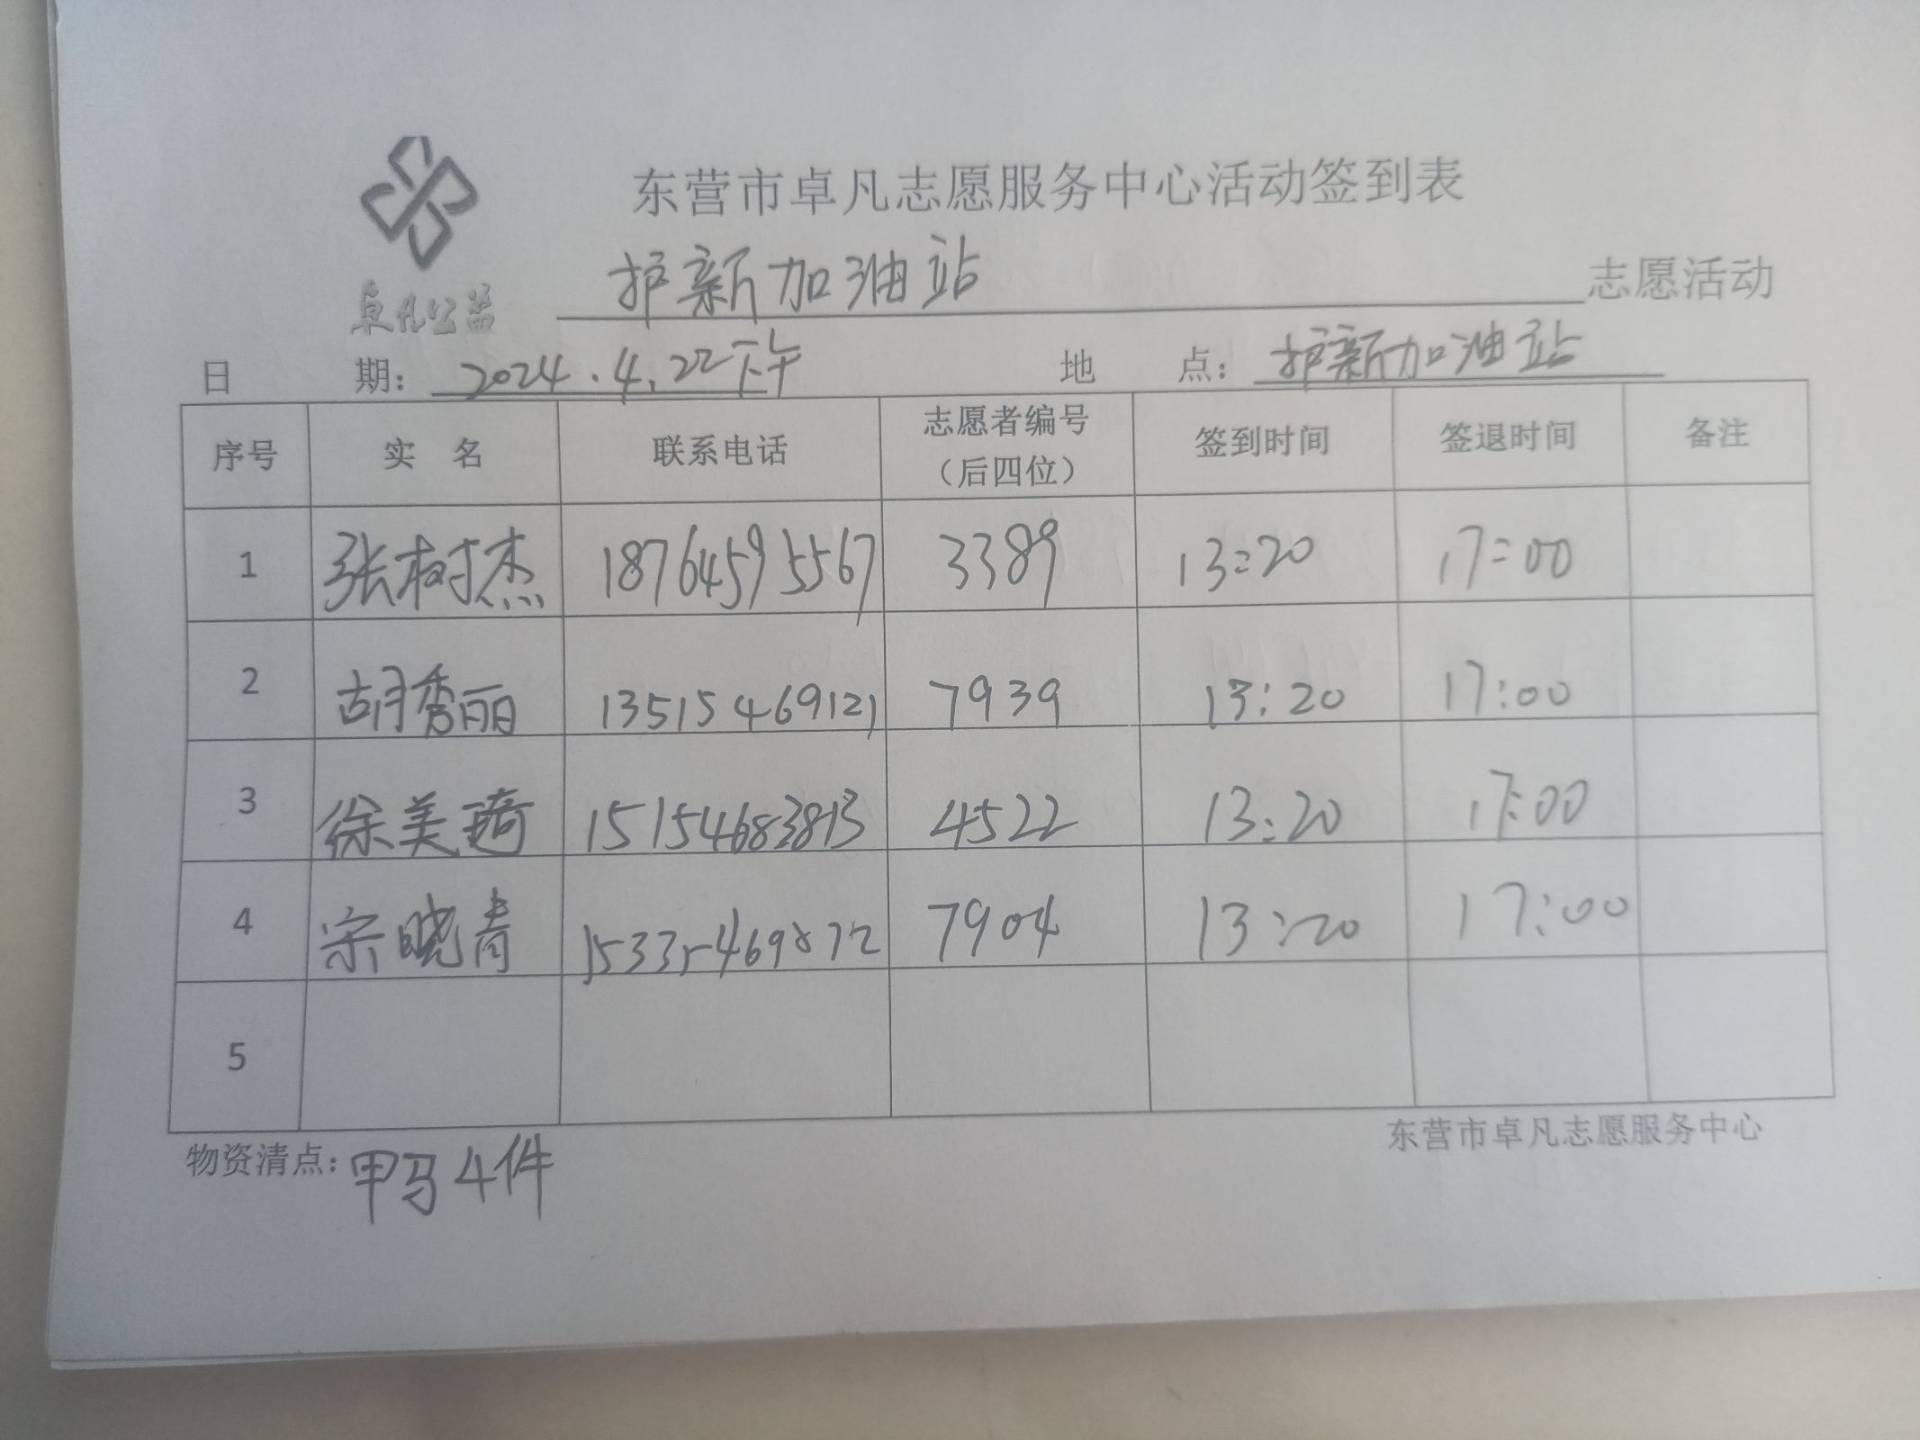 东营市卓凡志愿服务中心活动签到表
卓凡公益
护新加油站 志愿活动
日 期：2024.4.22下午 地 点：护新加油站
序号 实 名 联系电话 志愿者编号（后四位） 签到时间 签退时间 备注
1 张树杰 18764595567 3389 13:20 17:00
2 胡秀丽 13515469121 7939 13:20 17:00
3 徐美琦 15154683813 4522 13:20 17:00
4 宋晓青 15335469872 7904 13:20 17:00
5
物资清点：甲马4件
东营市卓凡志愿服务中心